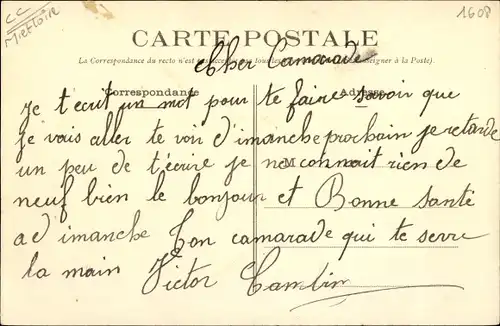 CC
Mettoire
1608
CARTE POSTALE
La Correspondance du recto n'est pas acceptée par tous les pays étrangers (Se renseigner à la Poste).
Cher Camarade
Correspondance Adresse
Je t'ecrit un mot pour te faire savoir que
je vais aller te voir d'imanche prochain je retarde
un peu de t'écrire je ne connait rien de
M
neuf bien le bonjour et Bonne Santé
a d imanche Ton camarade qui te serre
la main Victor Camblin